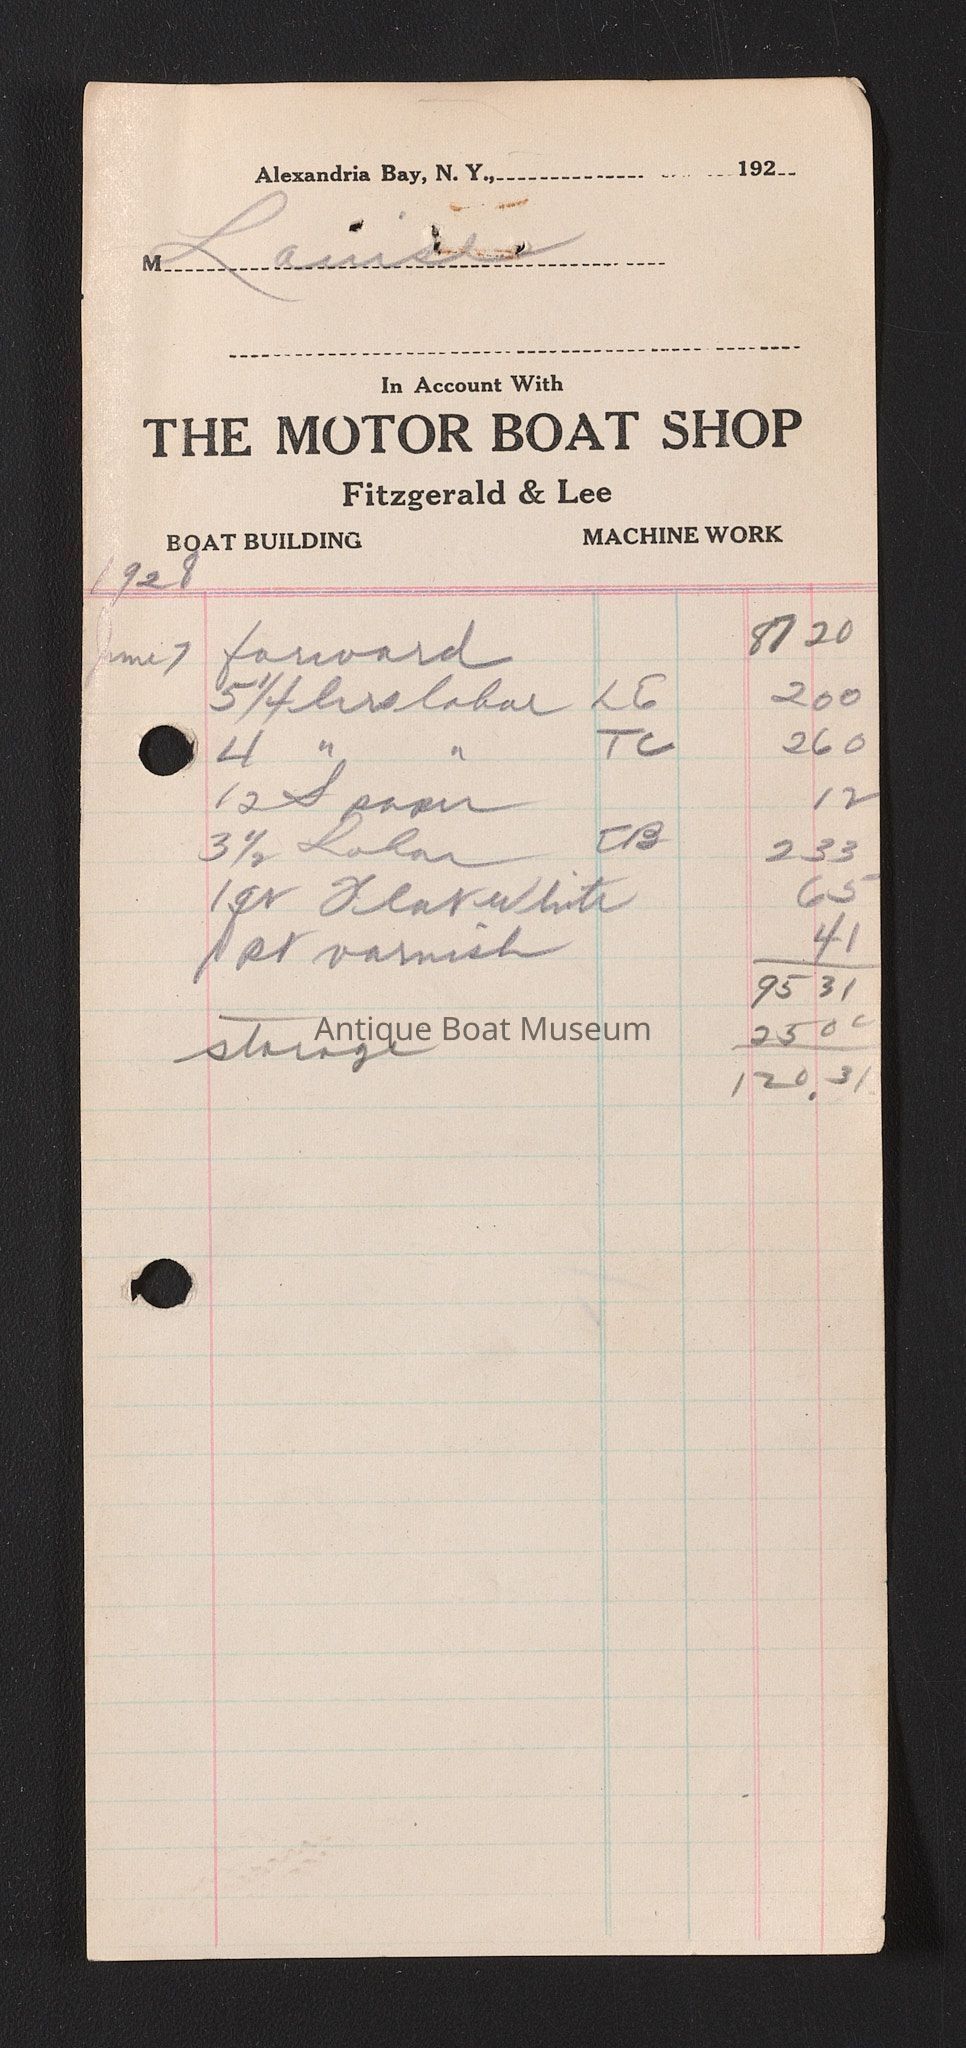 Alexandria Bay, N. Y., 192
M Louise
In Account With
THE MOTOR BOAT SHOP
Fitzgerald & Lee
BOAT BUILDING MACHINE WORK
1928
June 7 forward 87 20
5 1/4 hrs labor LE 2 00
4 " " TC 2 60
12 S paper 12
3 1/2 Labor CB 2 33
1 qt Flat White 65
1 pt varnish 41
95 31
Antique Boat Museum
storage 25 00
120.31